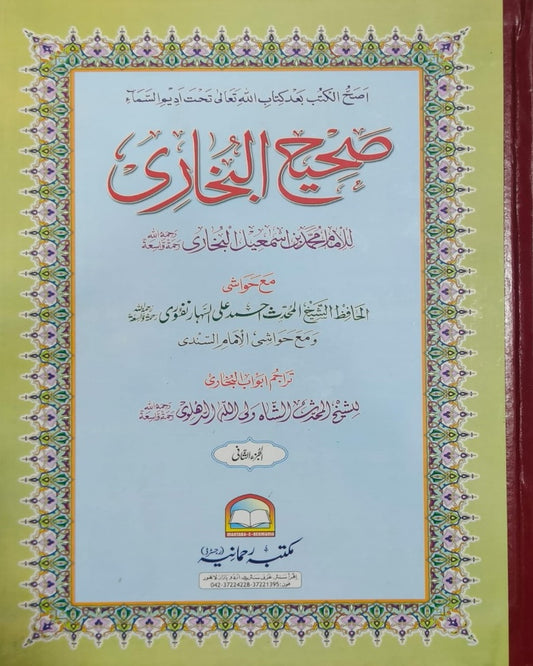 اصح الکتب بعد کتاب الله تعالى تحت اديم السماء
صحيح البخاری
للامام محمد بن اسمعيل البخاری رحمة الله رحمة واسعة
مع حواشی
الحافظ الشيخ المحدث احمد علی السهارنفوری رحمة الله رحمة واسعة
ومع حواشی الامام السندی
تراجم ابواب البخاری
للشيخ المحدث الشاه ولی الله الدهلوی رحمة الله رحمة واسعة
الجزء الثانی
MAKTABA-E-REHMANIA
مکتبہ رحمانیہ (رجسٹرڈ)
اقرأ سنٹر غزنی سٹریٹ اردو بازار لاہور
فون: 042-37224228-37221395